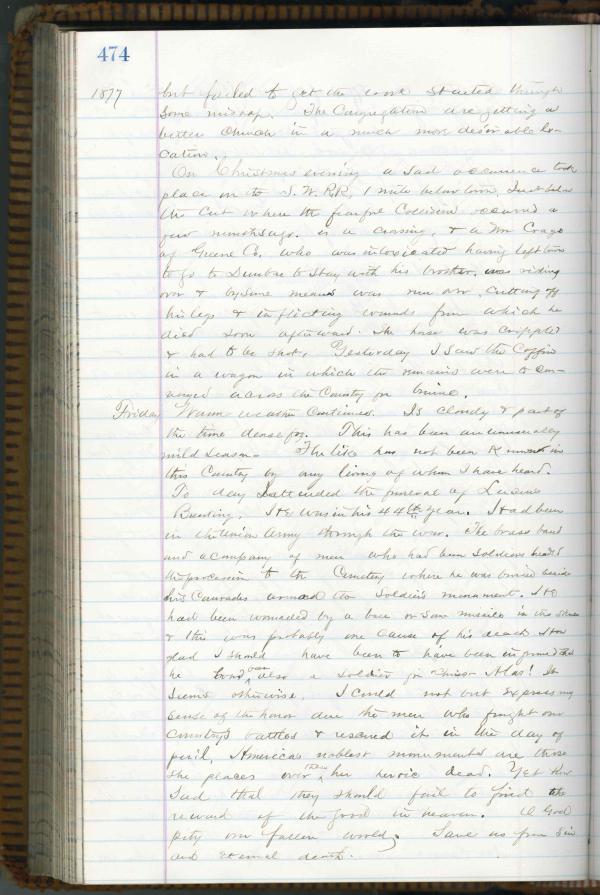 474
1877 but failed to get the work started through
some mishap. The Congregation are getting a
better Church in a much more desirable lo-
cation.
On Christmas evening a sad occurrence took
place on the S. W. R.R. 1 mile below town. Just below
the Cut where the fearful Collision occurred a
few months ago. is a crossing, & a Wm Crago
of Greene Co. who was intoxicated having left town
to go to Dunbar to stay with his brother, was riding
over & by some means was run over, cutting off
his legs & inflicting wounds from which he
died soon afterward. The horse was crippled
& had to be shot. Yesterday I saw the Coffin
in a wagon in which the remains were to con-
veyed across the Country for burial.
Friday Warm weather Continues. Is cloudy & part of
the time dense fog. This has been an unusually
mild season. The like has not been known in
this Country by any living of whom I have heard.
To day I attended the funeral of
Bunting. He was in his 44th year. Had been
in the Union Army through the war. The brass band
and a company of men who had been soldiers headed
the procession to the Cemetery where he was buried beside
his Comrades around the Soldiers monument. He
had been wounded by a ball or some missile in the
& this was probably one cause of his death. How
glad I should have been to have been informed that
he had been also a soldier for Christ. Alas! It
seems otherwise. I could not but express my
sense of the honor due the men who fought our
country's battles & rescued it in the day of
peril, America's noblest monuments are those
she places over them her heroic dead. Yet how
sad that they should fail to find the
reward of the good in heaven. O God
pity our fallen world, Save us from sin
and eternal death.